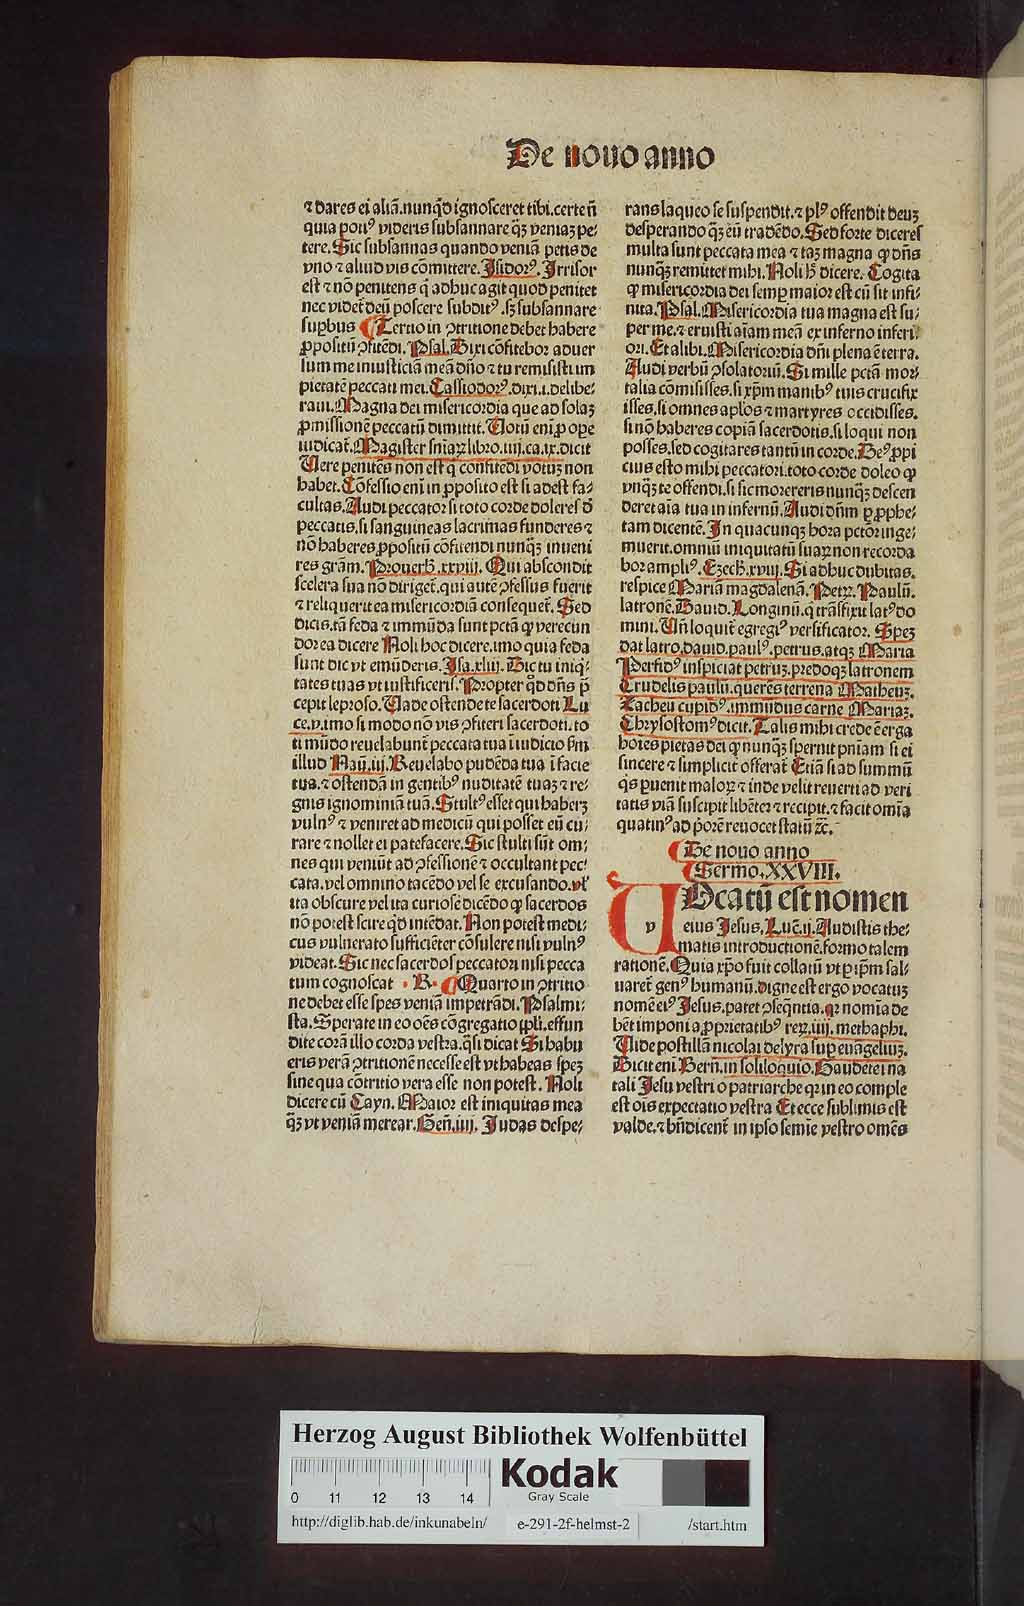 De nouo anno
⁊ dares ei aliā. nunq̄d ignosceret tibi. certe ñ
quia potiꝰ videris subsannare q̄ꝫ veniaꝫ pe⸗
tere. Sic subsannas quando veniā petis de
vno ⁊ aliud vis cōmittere. Isidorꝰ. Irrisor
est ⁊ nō penitens q̇ adhuc agit quod penitet
nec videt᷑ deū poscere subditꝰ. sꝫ subsannare
suꝑbus Tertio in ꝯtritione debet habere
ꝓpositū ꝯfitēdi. Psal. Dixi cōfitebor aduer
sum me iniusticiā meā dn̄o ⁊ tu remisisti im
pietatē peccati mei. Cassiodorꝰ. dixi. i. delibe⸗
raui. Magna dei misericordia que ad solaꝫ
ꝓmissionē peccatū dimittit. Uotū eni ꝓ oꝑe
iudicat᷑. Magister sn̄iaꝝ libro. iiij. ca. ix. dicit
Uere penitēs non est q̇ confitēdi votuꝫ non
habet. Cōfessio eni in ꝓposito est si adest fa⸗
cultas. Audi peccator si toto corde doleres ď
peccatis. si sanguineas lacrimas funderes ⁊
nō haberes ꝓpositū cōfitendi nunq̄ꝫ inueni
res grām. Prouerb̄. xxviij. Qui abscondit
scelera sua nō diriget᷑. qui autē ꝯfessus fuerit
⁊ reliquerit ea misericordiā consequet᷑. Sed
dicis. tā feda ⁊ immūda sunt pctā ꝙ verecun
dor ea dicere Noli hoc dicere. imo quia feda
sunt dic vt emūderis. Isa. xliij. Dic tu iniq̇⸗
tates tuas vt iustificeris. Propter q̄d dn̄s p̄
cepit leproso. Uade ostende te sacerdoti Lu
ce. v. imo si modo nō vis ꝯfiteri sacerdoti. to
ti mūdo reuelabunt᷑ peccata tua ī iudicio sm̄
illud Naū. iij. Reuelabo pudēda tua ī facie
tua. ⁊ ostendā in gentibꝰ nuditatē tuaꝫ ⁊ re⸗
gnis ignominiā tuā. Stultꝰ esset qui haberꝫ
vulnꝰ ⁊ veniret ad medicū qui posset eū cu⸗
rare ⁊ nollet ei patefacere. Sic stulti sūt om⸗
nes qui veniūt ad ꝯfessionē ⁊ occultant pec⸗
cata. vel omnino tacēdo vel se excusando. vl̓
ita obscure vel ita curiose dicēdo ꝙ sacerdos
nō potest scire q̇d intēdat. Non potest medi⸗
cus vulnerato sufficiēter cōsulere nisi vulnꝰ
videat. Sic nec sacerdos peccatori nisi pecca
tum cognoscat · R · Quarto in ꝯtritio
ne debet esse spes veniā impetrādi. Psalmi⸗
sta. Sperate in eo oēs cōgregatio ppl̓i. effun
dite corā illo corda vestra. q̄si dicat Si habu
eris verā ꝯtritionē necesse est vt habeas speꝫ
sine qua cōtritio vera esse non potest. Noli
dicere cū Cayn. Maior est iniquitas mea
q̄ꝫ vt veniā merear. Gen̄. iiij. Judas despe⸗
rans laqueo se suspendit. ⁊ plꝰ offendit deuꝫ
desperando q̄ꝫ eū tradēdo. Sed forte diceres
multa sunt peccata mea ⁊ taꝫ magna ꝙ dn̄s
nunq̄ꝫ remittet mihi. Noli h̄ dicere. Cogita
ꝙ misericordia dei semꝑ maior est cū sit infi⸗
nita. Psal. Misericordia tua magna est su⸗
per me. ⁊ eruisti aīam meā ex inferno inferi⸗
ori. Et alibi. Misericordia dn̄i plena ē terra.
Audi verbū ꝯsolatoriū. Si mille pctā mor⸗
talia cōmisisses. si xp̄m manibꝰ tuis crucifix
isses. si omnes apl̓os ⁊ martyres occidisses.
si nō haberes copiā sacerdotis. si loqui non
posses. sed cogitares tantū in corde. Deꝰ ꝓpi
cius esto mihi peccatori. toto corde doleo ꝙ
vnq̄ꝫ te offendi. si sic morereris nunq̄ꝫ descen
deret aīa tua in infernū. Audi dn̄m ꝑ ꝓphe⸗
tam dicentē. In quacunqꝫ hora pctōr inge⸗
muerit. omniū iniquitatū suaꝝ non recorda
bor ampliꝰ. Ezech̄. xviij. Si adhuc dubitas.
respice Mariā magdalenā. Petꝝ. Paulū.
latronē. Dauid. Longinū. q̇ trāsfixit latꝰ do
mini. Un̄ loquit᷑ egregiꝰ versificator. Speꝫ
dat latro. dauid. paulꝰ. petrus. atqꝫ Maria
Perfidꝰ inspiciat petruꝫ. predoqꝫ latronem
Crudelis paulū. querēs terrena Matheuꝫ.
Zacheū cupidꝰ. immūdus carne Mariaꝫ.
Chrysostomꝰ dicit. Talis mihi crede ē erga
hoīes pietas dei ꝙ nunq̄ꝫ spernit pn̄iam si ei
sincere ⁊ simplicit̓ offerat᷑ Etiā si ad summū
q̇s ꝑuenit maloꝝ ⁊ inde velit reuerti ad veri
tatis viā suscipit libēter ⁊ recipit. ⁊ facit om̄ia
quatinꝰ ad p̓orē reuocet statū ⁊c̄.
De nouo anno
Sermo. XXVIII.
UOcatū est nomen
eius Jesus. Luc̄. ij. Audistis the⸗
matis introductionē. formo talem
rationē. Quia xp̄o fuit collatū vt ꝑ ip̄m sal⸗
uaret᷑ genꝰ humanū. digne est ergo vocatuꝫ
nomē eiꝰ Jesus. patet ꝯseq̄ntia. qꝛ nomīa de
bēt imponi a ꝓprietatibꝰ reꝝ. iiij. methaphi.
Uide postillā nicolai de lyra suꝑ euāgeliuꝫ.
Dicit eni Bern̄. in soliloquio. Gaudete i na
tali Jesu vestri o patriarche qꝛ in eo comple
est oīs expectatio vestra Et ecce sublimis est
valde. ⁊ bn̄dicent᷑ in ipso semīe vestro omēs
Herzog August Bibliothek Wolfenbüttel
Kodak
Gray Scale
0 11 12 13 14
http://diglib.hab.de/inkunabeln/ e-291-2f-helmst-2 /start.htm